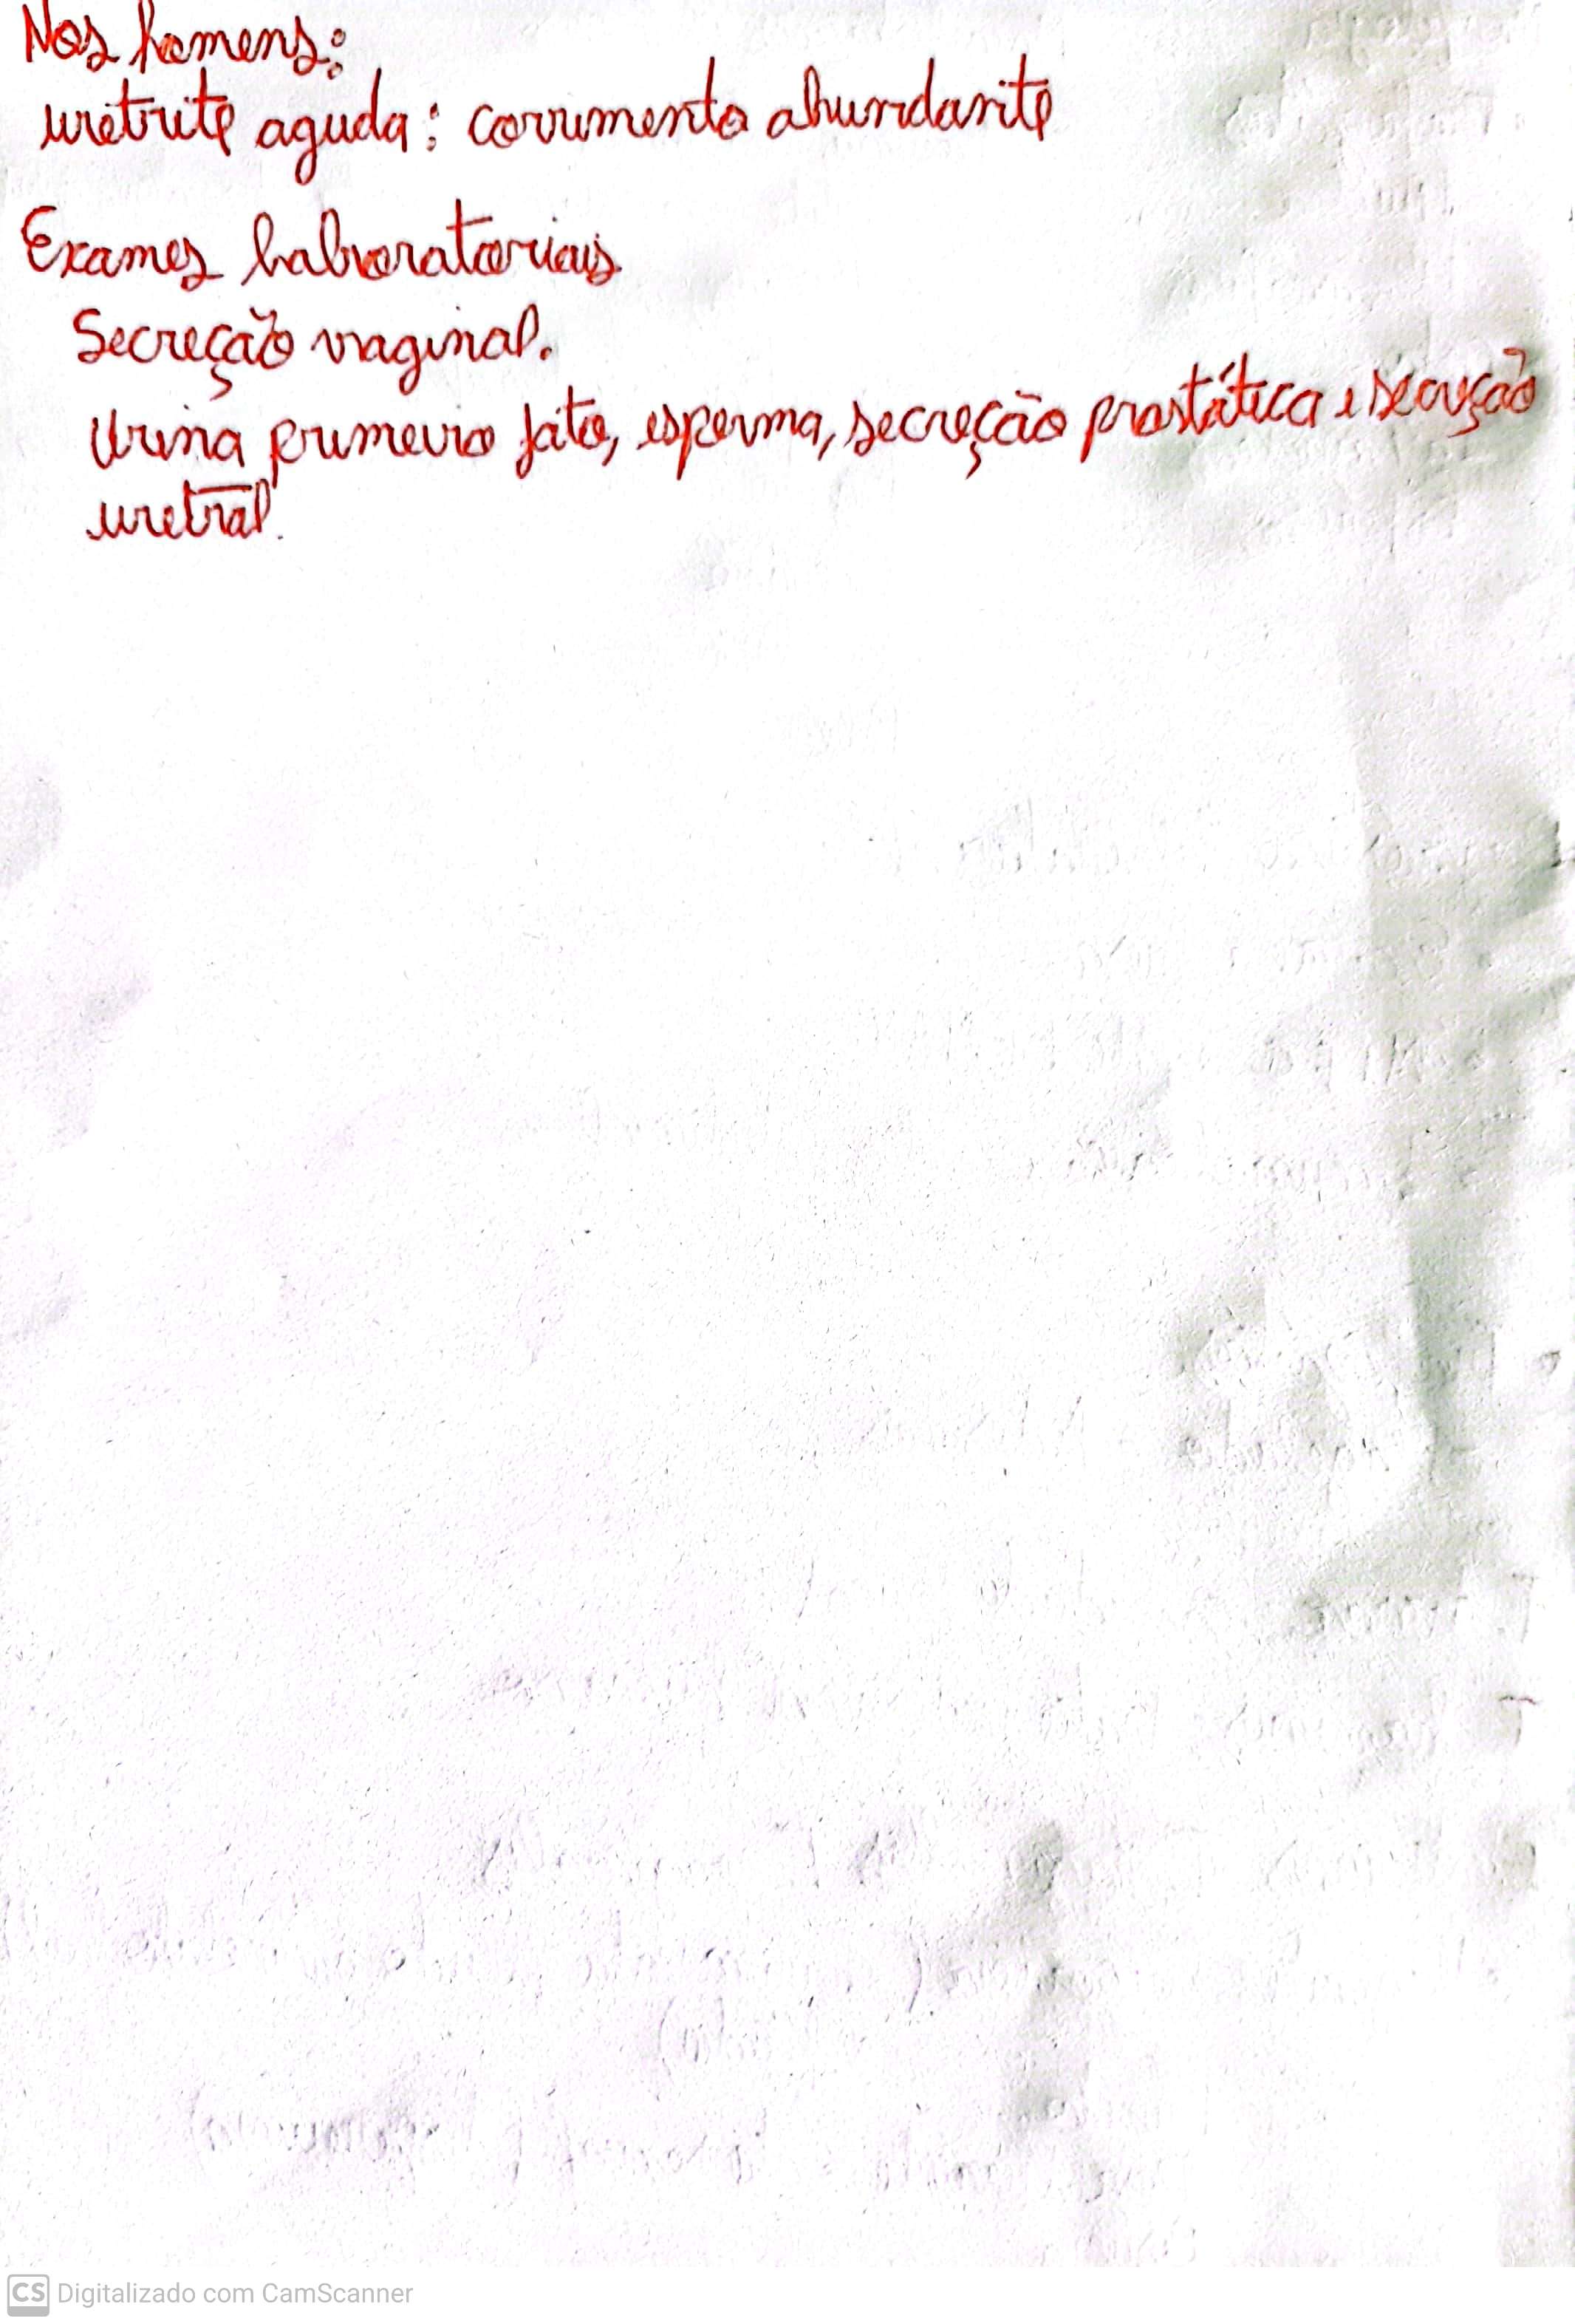 Nos homens:
uretrite aguda: corrimento abundante
Exames laboratoriais
Secreção vaginal.
Urina primeiro jato, esperma, secreção prostática e secreção
uretral.
CS Digitalizado com CamScanner